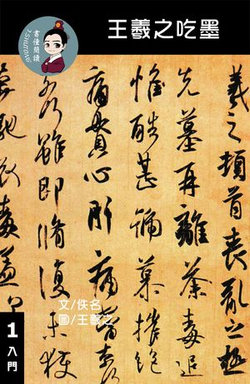 王羲之吃墨
書僮閱讀
羲之頓首喪亂之極
先墓再離荼毒追
惟酷甚號慕摧絕
痛貫心肝痛當奈
何雖即脩復未獲
馳哀毒益
文/佚名
圖/王羲之
1
入門